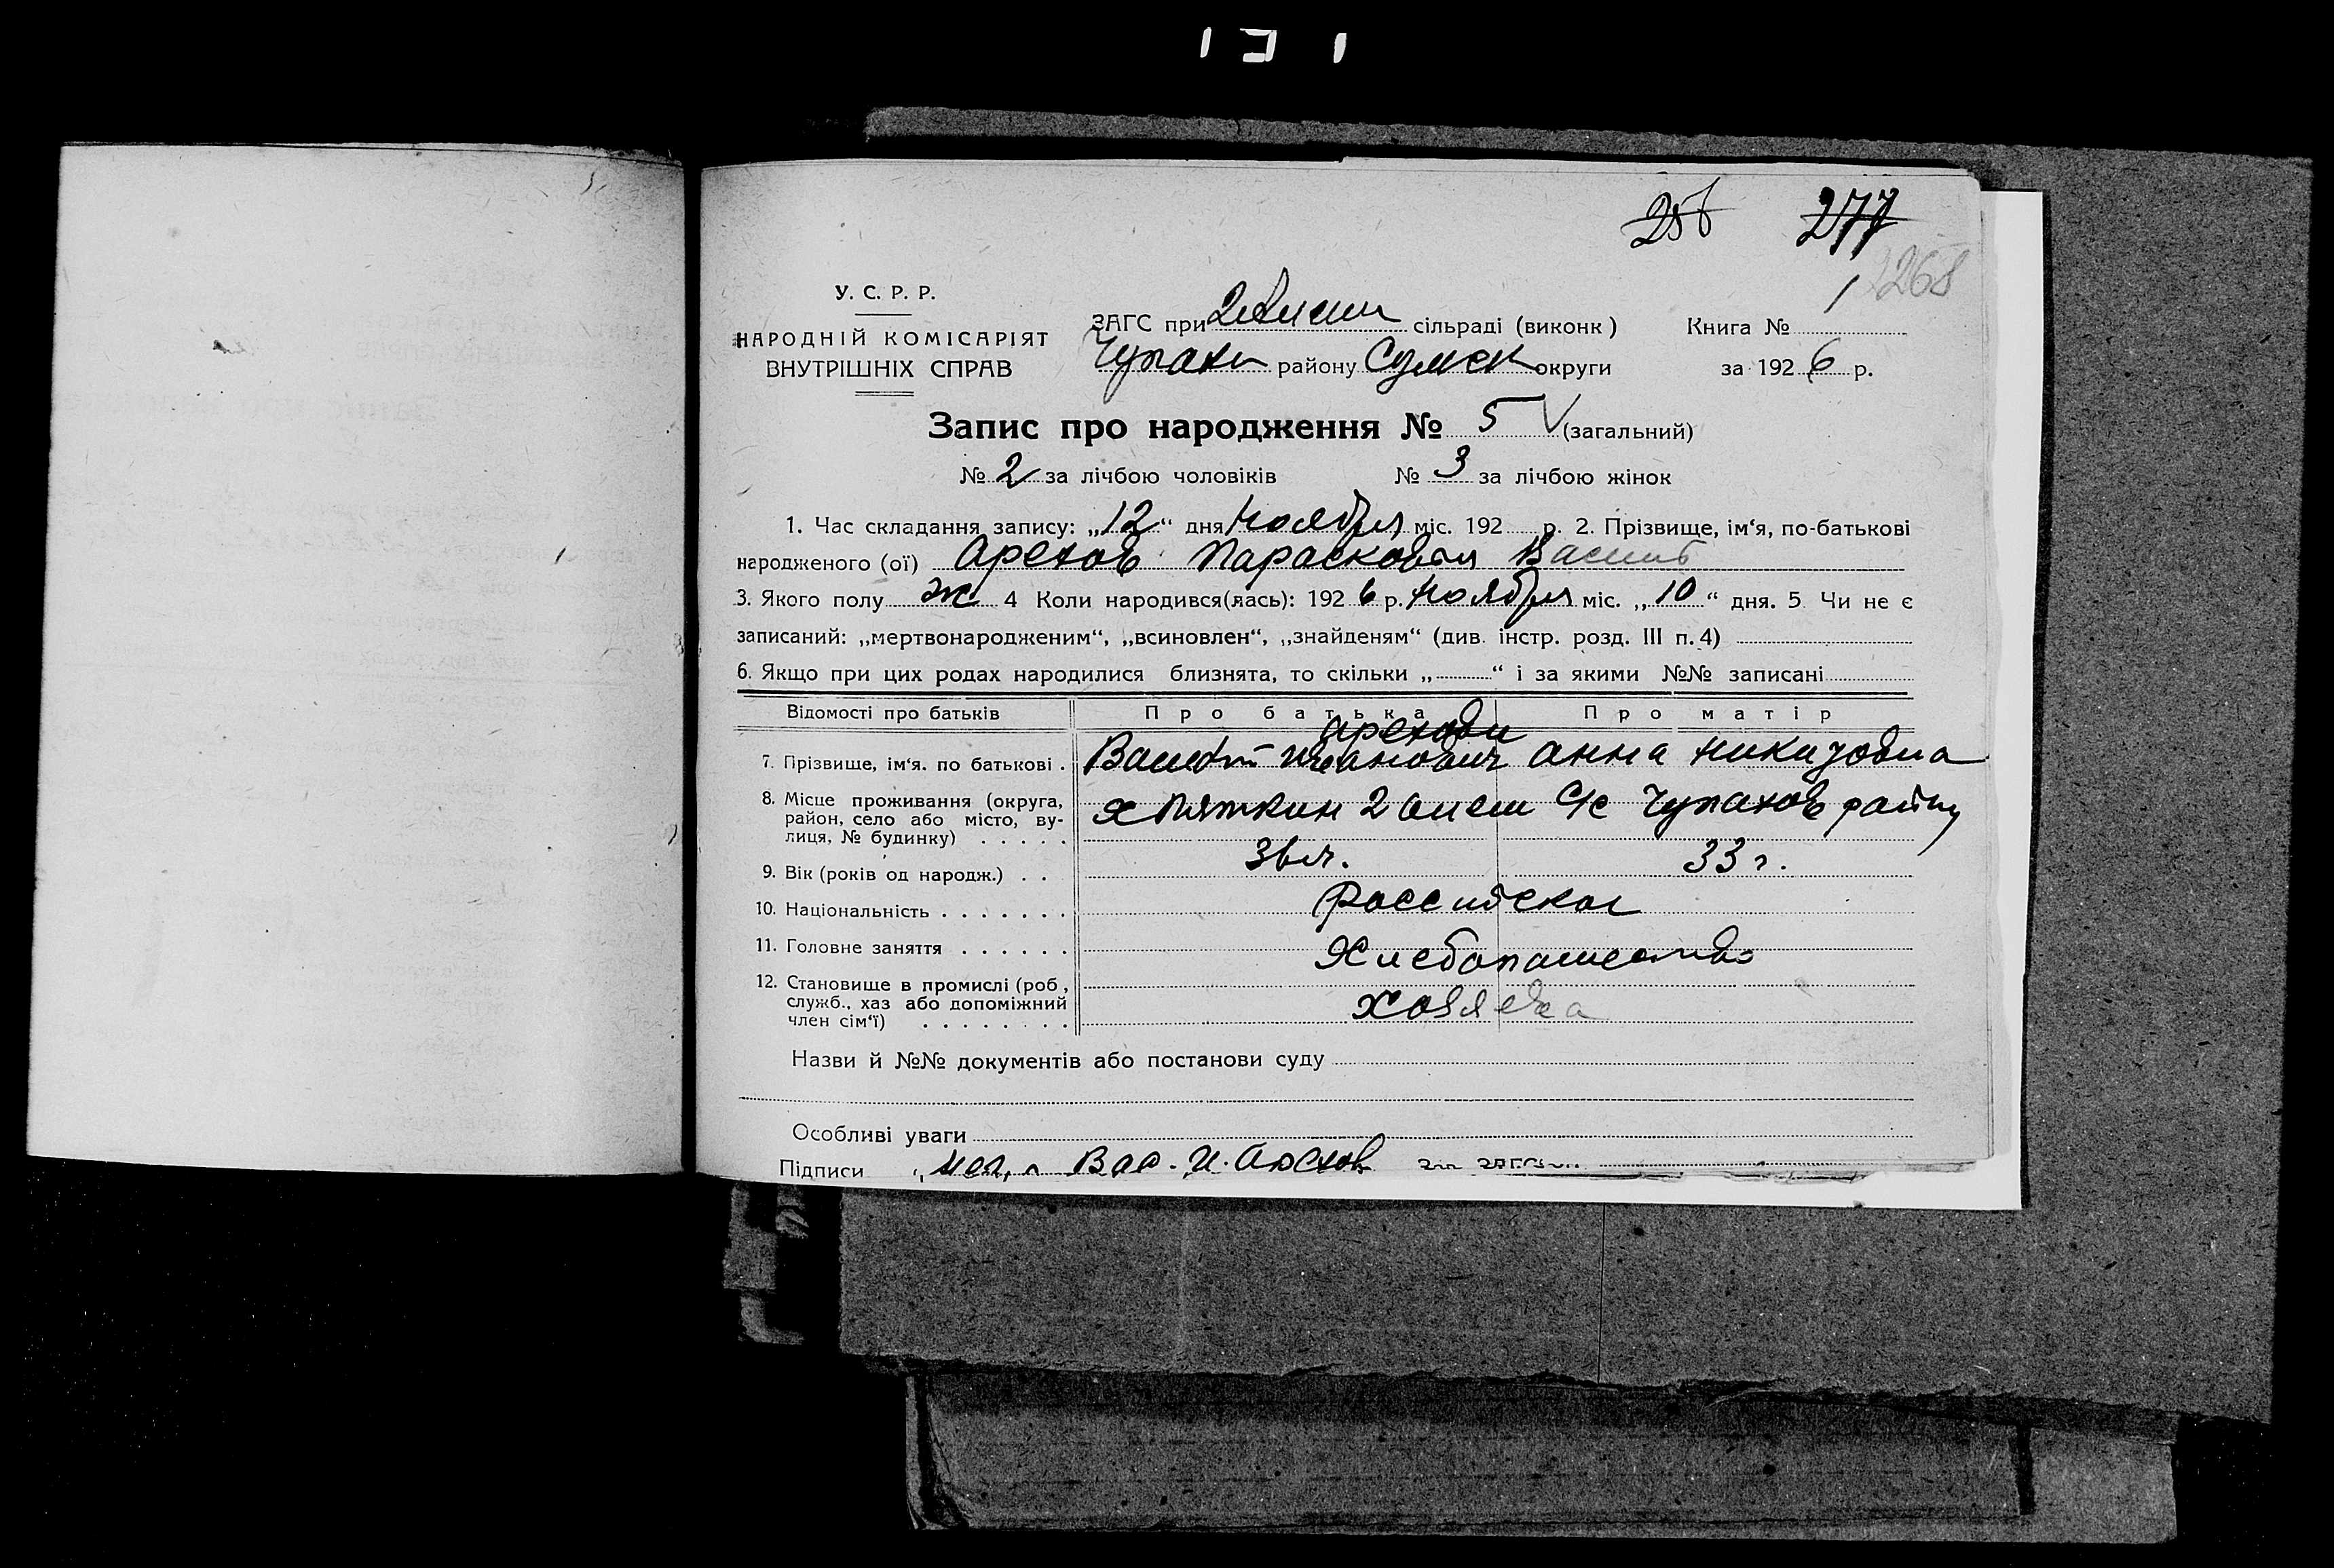 256 277
268
У. С. Р. Р.
НАРОДНІЙ КОМІСАРІЯТ
ВНУТРІШНІХ СПРАВ
ЗАГС при сільраді (виконк) Книга № 1
Чупахи району Сумск округи за 1926 р.
Запис про народження № 5 (загальний)
№ 2 за лічбою чоловіків № 3 за лічбою жінок
1. Час складання запису: „12“ дня Ноября міс. 192 р. 2. Прізвище, ім‘я, по-батькові
народженого (ої) Арехов Парасковья Васил
3. Якого полу ж 4 Коли народився(лась): 1926 р. Ноября міс. „10“ дня. 5 Чи не є
записаний: „мертвонародженим“, „всиновлен“, „знайденям“ (див. інстр. розд. III п. 4)
6. Якщо при цих родах народилися близнята, то скільки „ “ і за якими №№ записані
Відомості про батьків Про батька Про матір
Ареховы
7. Прізвище, ім‘я. по батькові . Иванович Анна Никитовна
8. Місце проживання (округа,
район, село або місто, ву-
лиця, № будинку) . . . . .
х Пяткин 2 с/с Чупахов район
9. Вік (років од народж.) . . 36 л. 33 г.
10. Національність . . . . . . . Российская
11. Головне заняття . . . . . . Хлебопашество
12. Становище в промислі (роб,
служб., хаз або допоміжний
член сім‘ї) . . . . . . . .
Назви й №№ документів або постанови суду
Особливі уваги
Підписи Вас. И. Арехов